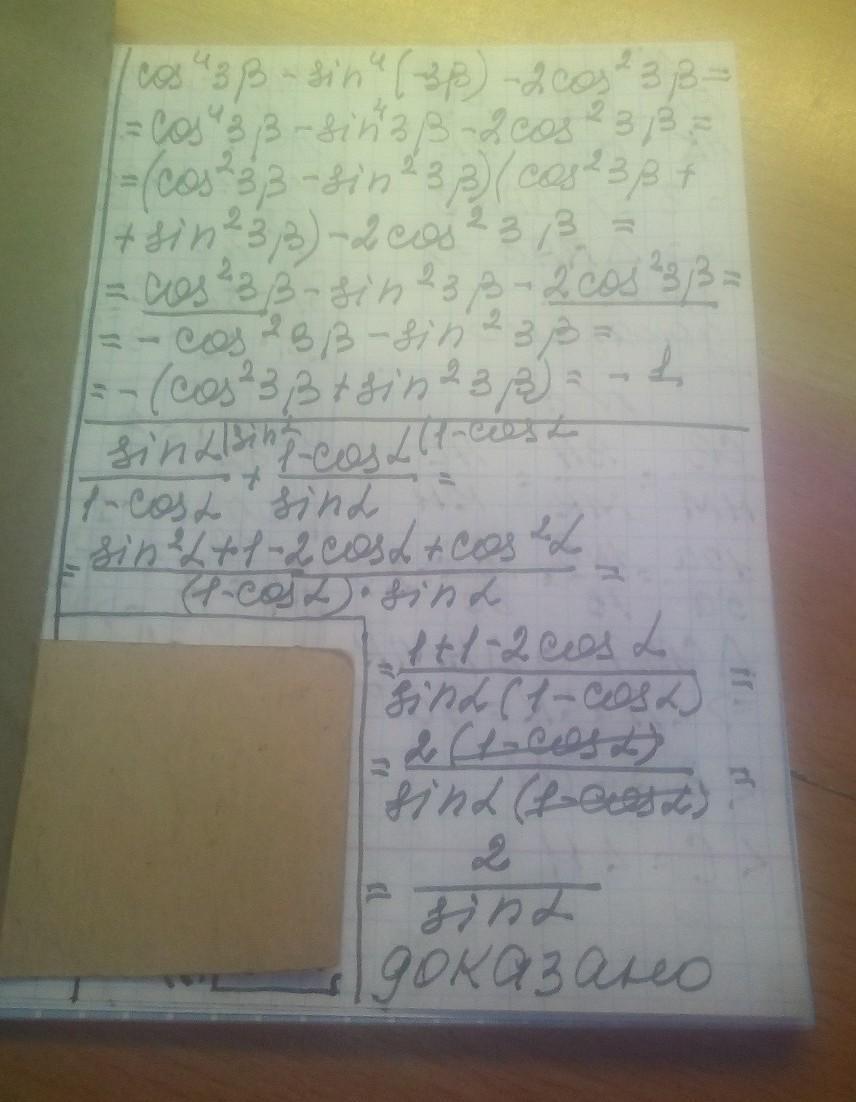 cos⁴3β - sin⁴(-3β) - 2cos²3β =
= cos⁴3β - sin⁴3β - 2cos²3β =
= (cos²3β - sin²3β)(cos²3β +
+ sin²3β) - 2cos²3β =
= cos²3β - sin²3β - 2cos²3β =
= - cos²3β - sin²3β =
= - (cos²3β + sin²3β) = - 1
sinα|sinα 1-cosα(1-cosα
1-cosα + sinα =
= sin²α+1-2cosα+cos²α =
(1-cosα)·sinα
= 1+1-2cosα =
sinα(1-cosα)
= 2(1-cosα) =
sinα(1-cosα)
= 2
sinα
доказано